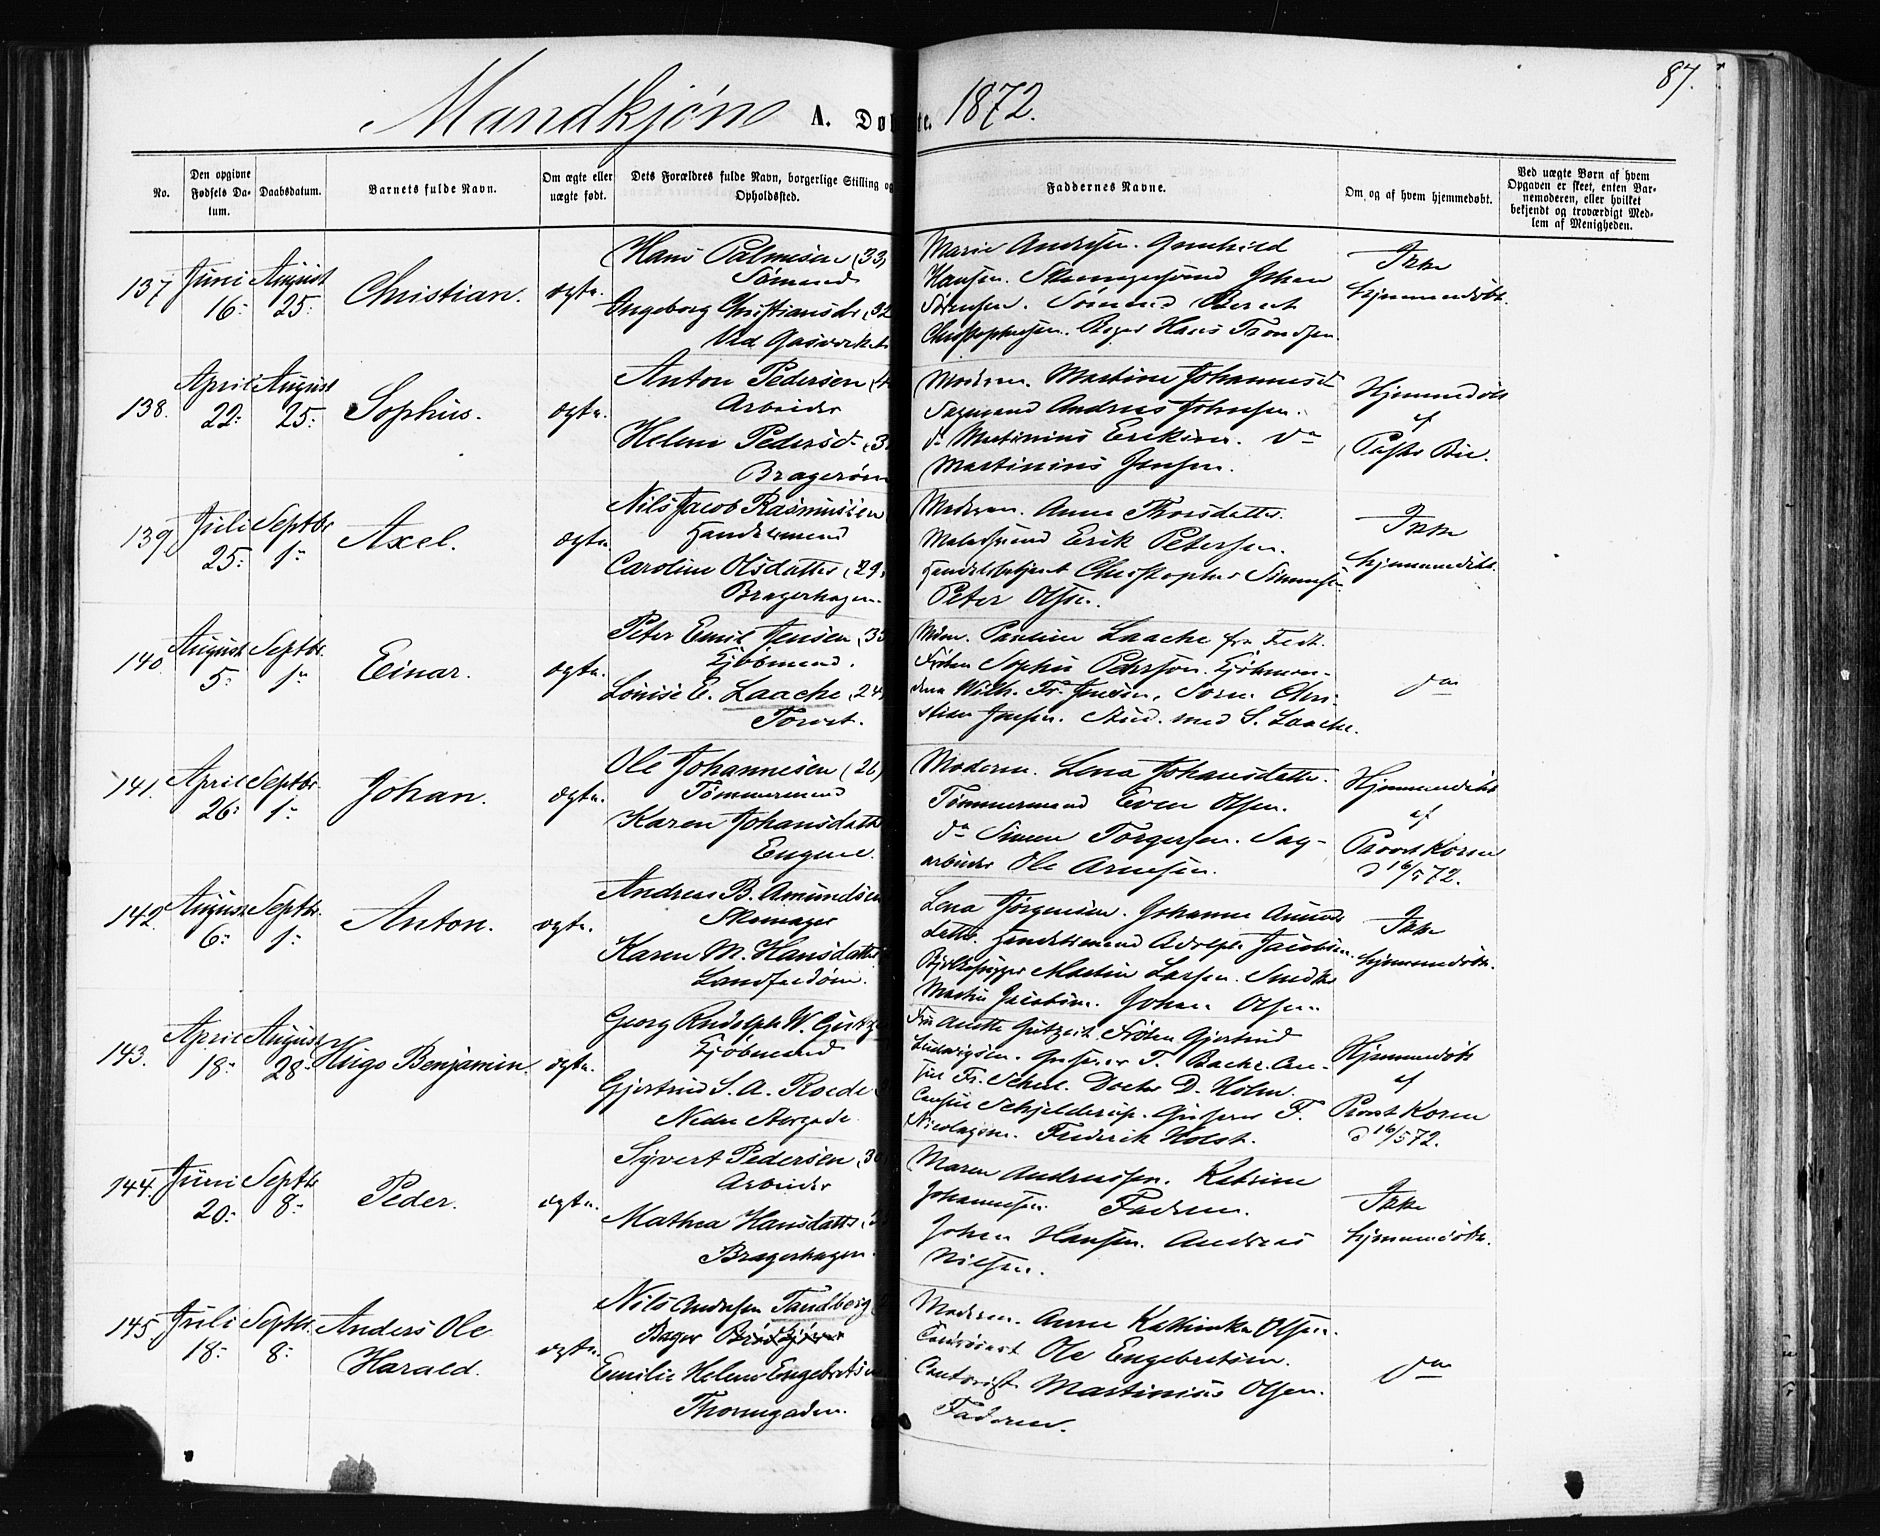 87.
Mandkjøn A. Døbte. 1872.
No.
Den opgivne Fødsels Datum.
Daabsdatum.
Barnets fulde Navn.
Om ægte eller uægte født.
Dets Forældres fulde Navn, borgerlige Stilling og Opholdssted.
Faddernes Navne.
Om og af hvem hjemmedøbt.
Ved uægte Børn af hvem Opgaven er skeet, enten Barnemoderen, eller hvilket bekjendt og troværdigt Medlem af Menigheden.
137 Juni 16: August 25: Christian. ægte.
Hans Palmesen (33)
Sømand
Ingeborg Christiansdr (32
Ved Gasværket
Marie Andersen. Gunhild
Hansen. Johan
Sørensen. Sømand Bernt
Christophersen. Bager Hans Trondsen.
Ikke
hjemmedøbt.
138. April 22: August 25: Sophus. ægte.
Anton Pedersen
Arbeider
Helene Pedersd.
Bragerøen
Moderen. Martine Johannesd.
Sagmand Andreas Johnsen.
do Martinius Eriksen. do
Martinius Jensen.
Hjemmedøbt
af
Pastor Bie.
139. Juli 25: Septbr 1: Axel. ægte.
Nils Jacob Rasmussen
Handelsmand
Caroline Olsdatter (29
Bragerhagen.
Moderen. Anne Thorsdatter.
Erik Petersen.
Handelsbetjent Christopher Simensen.
Peter Olsen.
Ikke
hjemmedøbt.
140 August 5: Septbr. 1: Einar. ægte.
Peter Emil Jensen (33
Kjøbmand.
Louise E. Laache (24
Torvet.
Mdm. Pauline Laache fra Fedt.
Frøken Sophie Pedersen. Kjøbmæn-
dene Wilh. Fr. Jensen, Søren Chri-
stian Jensen. Stud. med S. Laache.
do
141. April 26: Septbr. 1: Johan. ægte.
Ole Johannesen (26)
Tømmermand
Karen Johansdatt
Engene.
Moderen. Lena Johansdatter.
Tømmermand Even Olsen.
do Simen Torgersen. Sag-
arbeider Ole Arnesen.
Hjemmedøbt
af
Provst Koren
d 16/5 72.
142. August 6: Septbr. 1: Anton. ægte.
Andreas B. Amundsen
Skomager
Karen M. Hansdatter
Landfaldøen.
Lena Jørgensen. Johanne Amunds
datter. Handelsmand Adolph Jacobsen.
Martin Larsen. Snedker
Martin Jacobsen. Johan Olsen
Ikke
hjemmedøbt.
143. April 18: August 28: Hugo Benjamin. ægte.
Georg Rudolph W. Gutzeit
Kjøbmand
Gjertrud S. A. Roede
Nedre Storgade.
Fru Anette Gutzeit. Frøken Gjertrud
Ludvigsen. Grosserer T. Bache. Con-
sul Fr. Schul. Doctor D. Holm.
Consul Schjelderup. Grosserer F.
Nicolaysen. Frederik Holst.
Hjemmedøbt
af
Provst Koren
d 16/5 72.
144. Juni 20: Septbr 8: Peder. ægte.
Syvert Pedersen (30
Arbeider
Mathea Hansdatter
Bragerhagen.
Maren Andreassen. Katrine
Johannesen. Faderen.
Johan Hansen. Andreas
Nilsen.
Ikke
hjemmedøbt.
145. Juli 18: Septbr. 8: Anders Ole
Harald. ægte.
Nils Andersen Tandberg
Bager
Emilie Helene Engebretsen
Thornegaden.
Moderen. Anne Kathinka Olsen.
Ole Engebretsen.
Contorist Martinius Olsen.
Faderen.
do